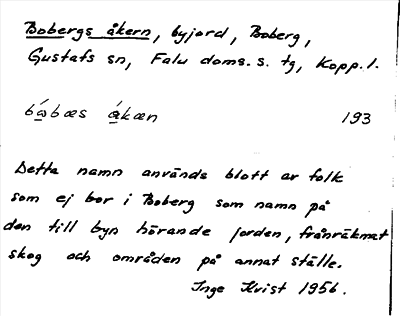 Bobergs åkern, byjord, Boberg,
Gustafs sn, Falu doms.s. tg, Kopp.l.
bǻbæs ǻkæn 193
Detta namn används blott av folk
som ej bor i Boberg som namn på
den till byn hörande jorden, frånräknat
skog och områden på annat ställe.
Inge Kvist 1956.